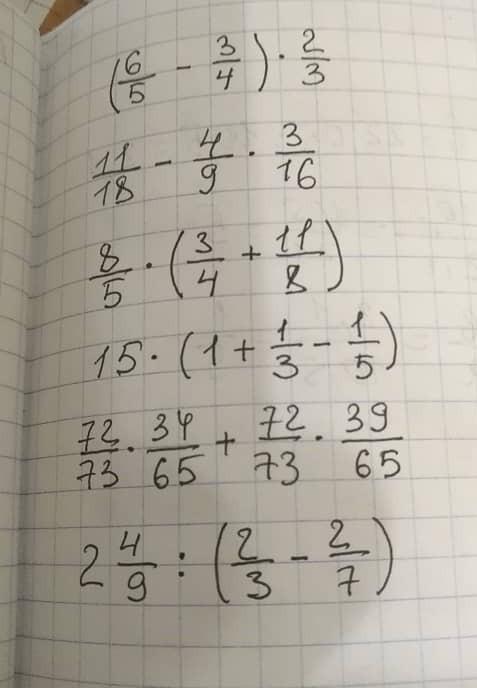 (6/5 - 3/4) · 2/3
11/18 - 4/9 · 3/16
8/5 · (3/4 + 11/8)
15 · (1 + 1/3 - 1/5)
72/73 · 34/65 + 72/73 · 39/65
2 4/9 : (2/3 - 2/7)